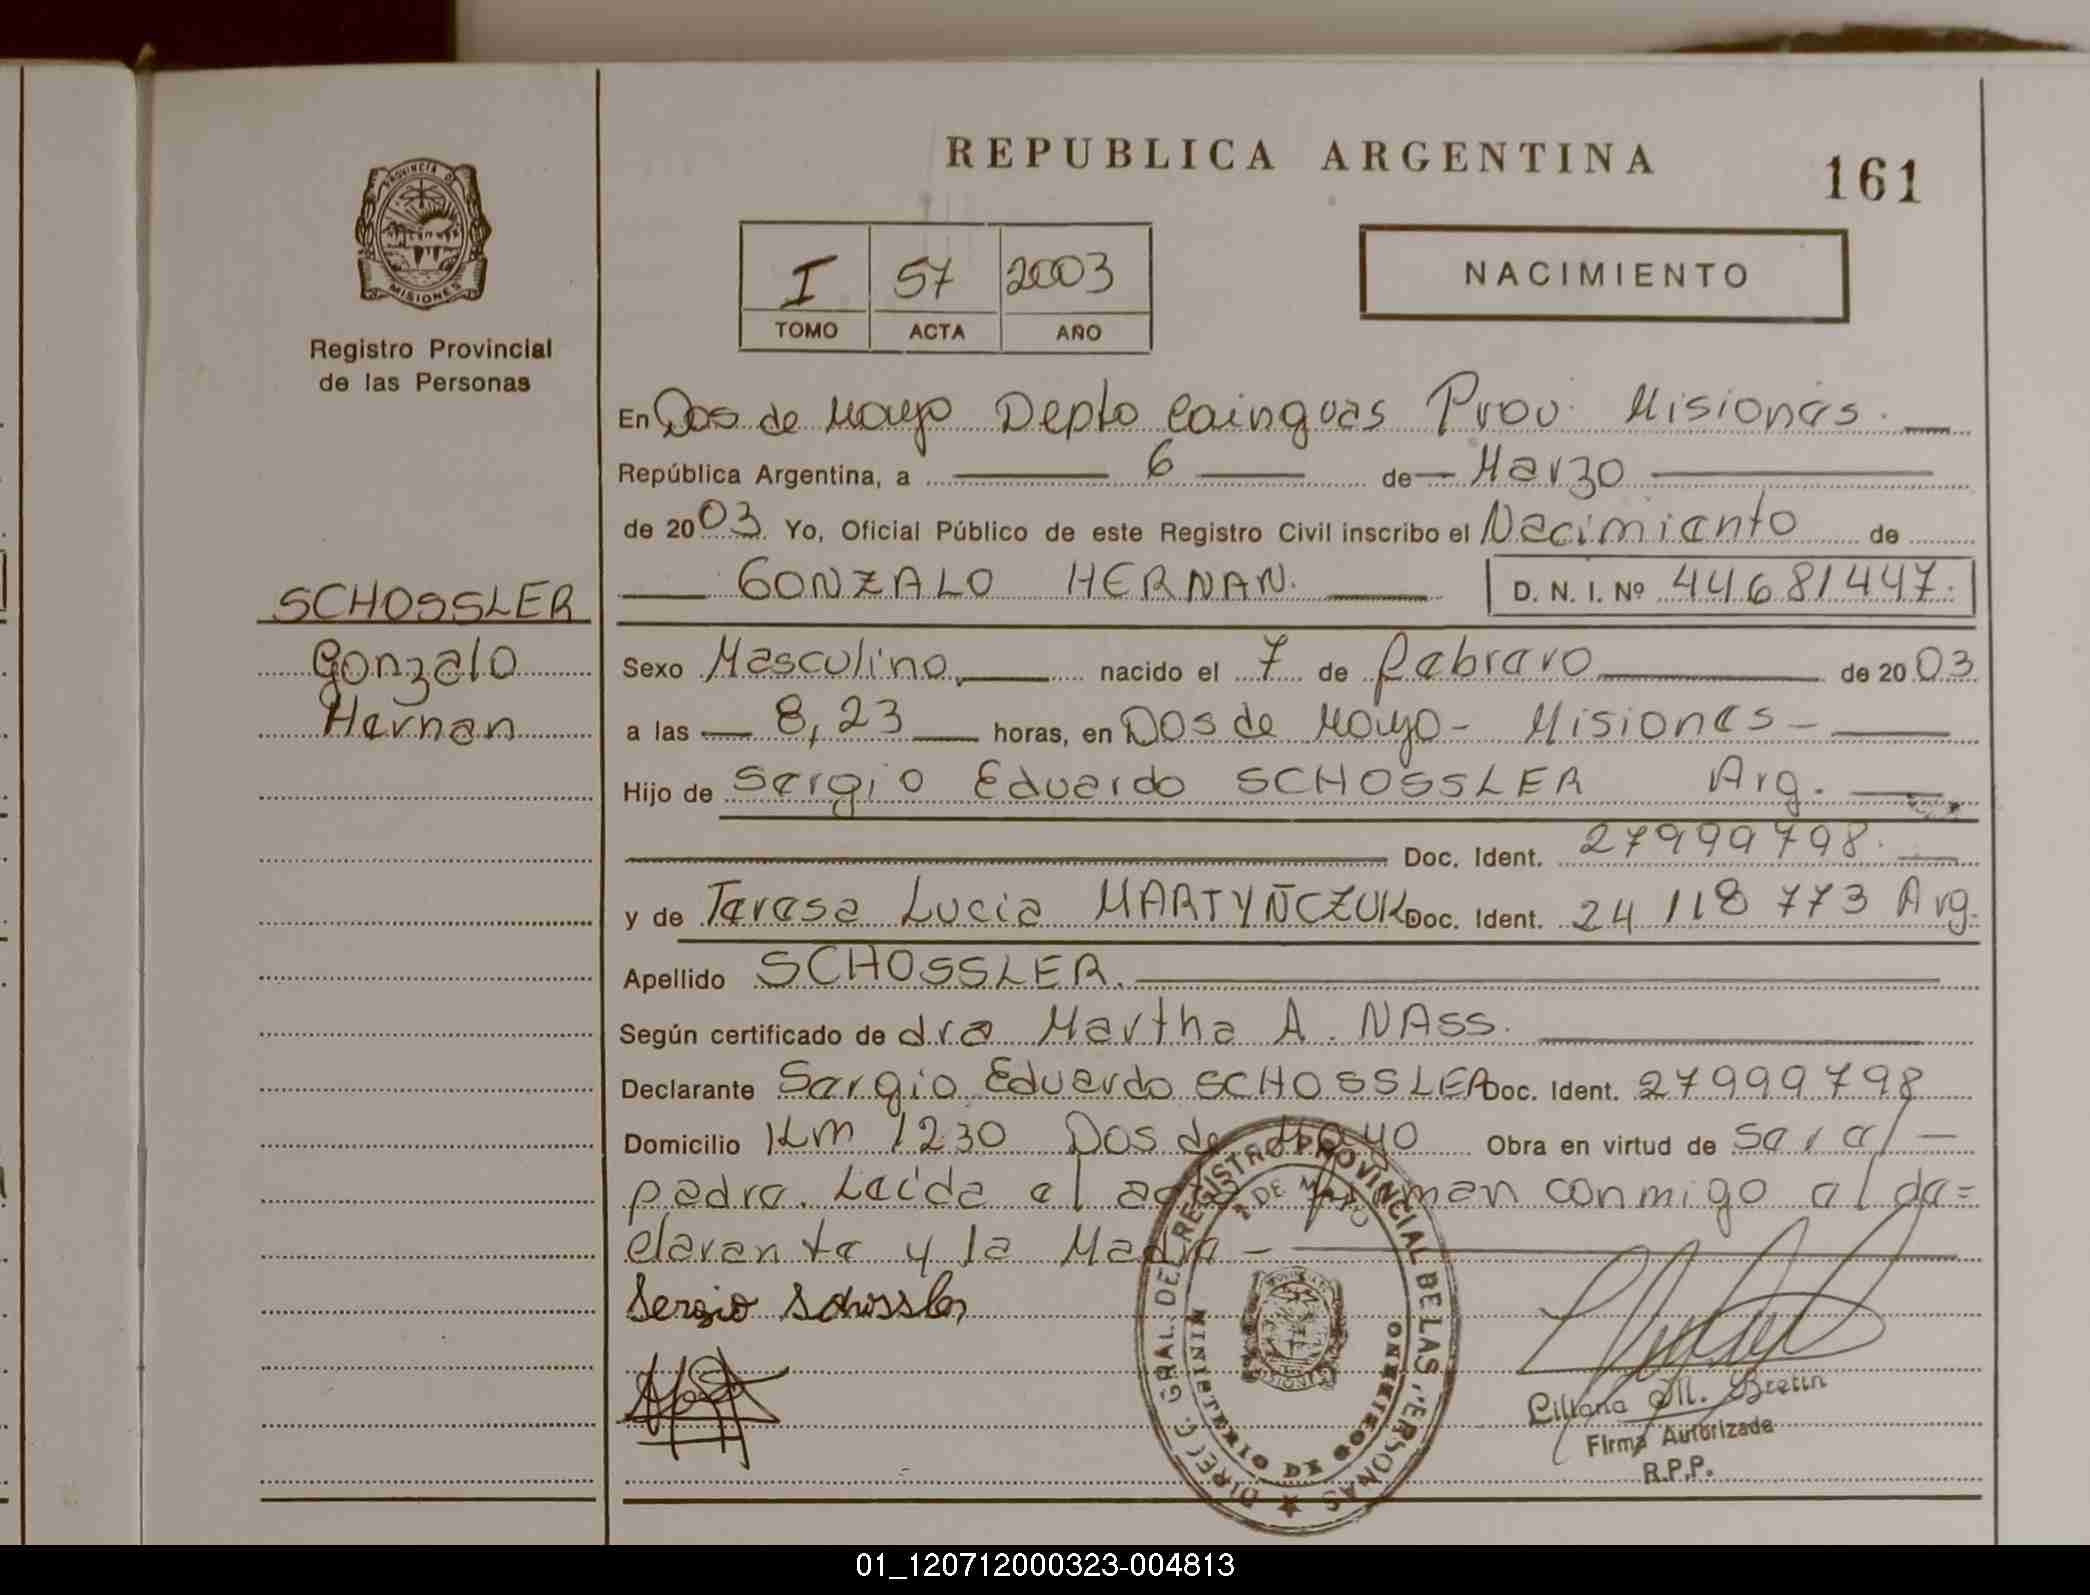 REPUBLICA ARGENTINA
161
PROVINCIA DE
MISIONES
Registro Provincial
de las Personas
I 57 2003
TOMO ACTA AÑO
NACIMIENTO
En Dos de Mayo Depto Cainguas Prov. Misiones.
República Argentina, a 6 de Marzo
de 2003 Yo, Oficial Público de este Registro Civil inscribo el Nacimiento de
GONZALO HERNAN. D. N. I. Nº 44681447.
SCHOSSLER
Gonzalo
Hernan
Sexo Masculino nacido el 7 de febrero de 2003
a las 8,23 horas, en Dos de Mayo - Misiones -
Hijo de Sergio Eduardo SCHOSSLER Arg.
Doc. Ident. 27999798.
y de Teresa Lucia MARTYÑCZUK Doc. Ident. 24 118 773 Arg.
Apellido SCHOSSLER.
Según certificado de dra Martha A. NASS.
Declarante Sergio Eduardo SCHOSSLER Doc. Ident. 27999798
Domicilio Km 1230 Dos de Mayo Obra en virtud de ser el -
padre. Leida el acta firman conmigo el de=
clarante y la Madre -
Sergio Schossler
DIRECC. GRAL. DEL REGISTRO PROVINCIAL DE LAS PERSONAS
2 DE MAYO
MINISTERIO DE GOBIERNO
MISIONES
Liliana M. Bretin
Firma Autorizada
R.P.P.
01_120712000323-004813